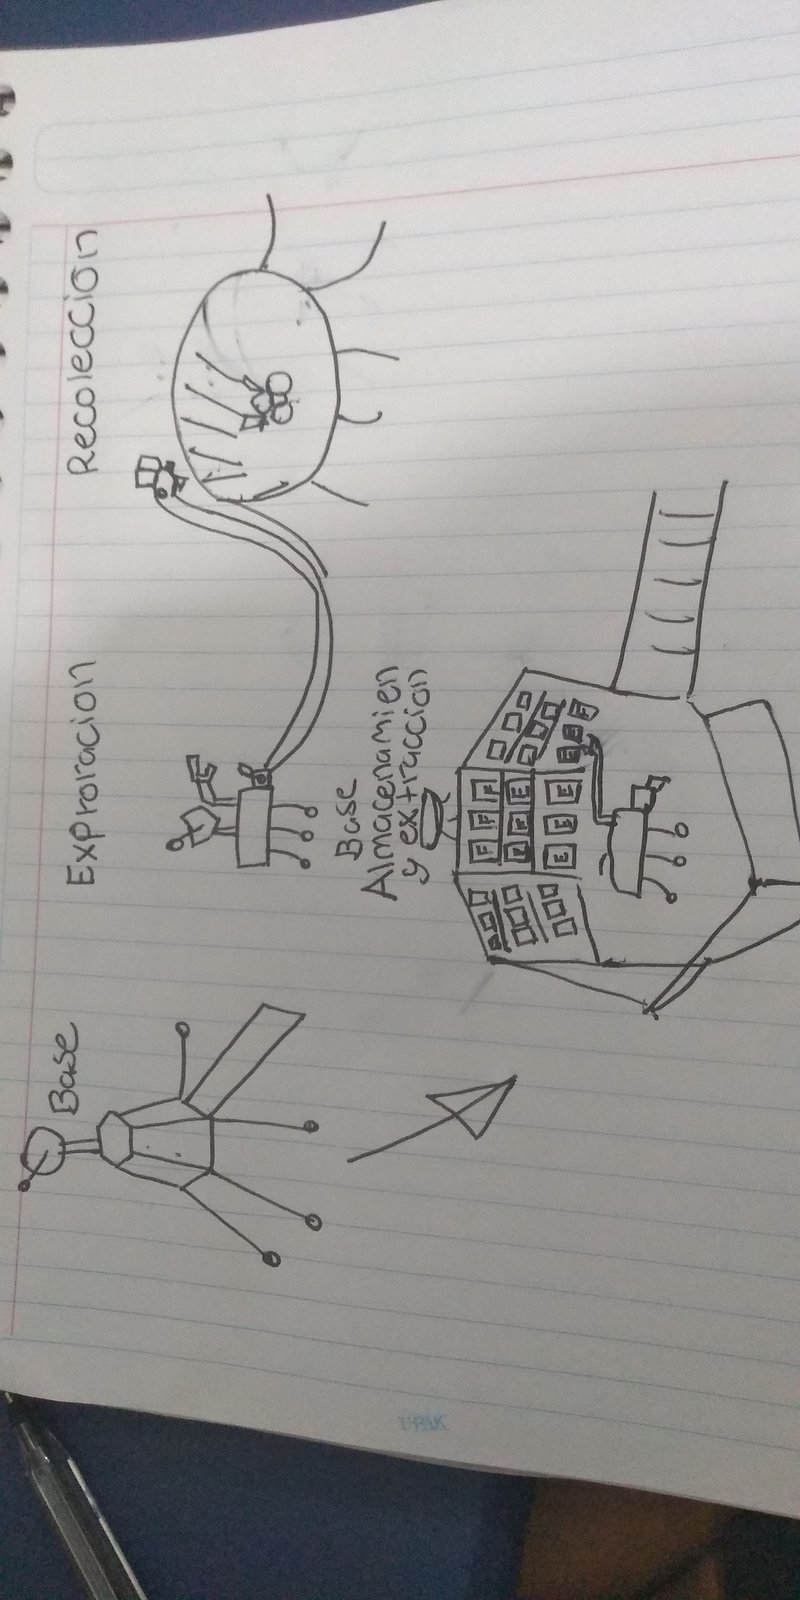 Base
Exproracion
Recoleccion
Base
Almacenamien
y extraccion
F F F
E F E
E E E E E F